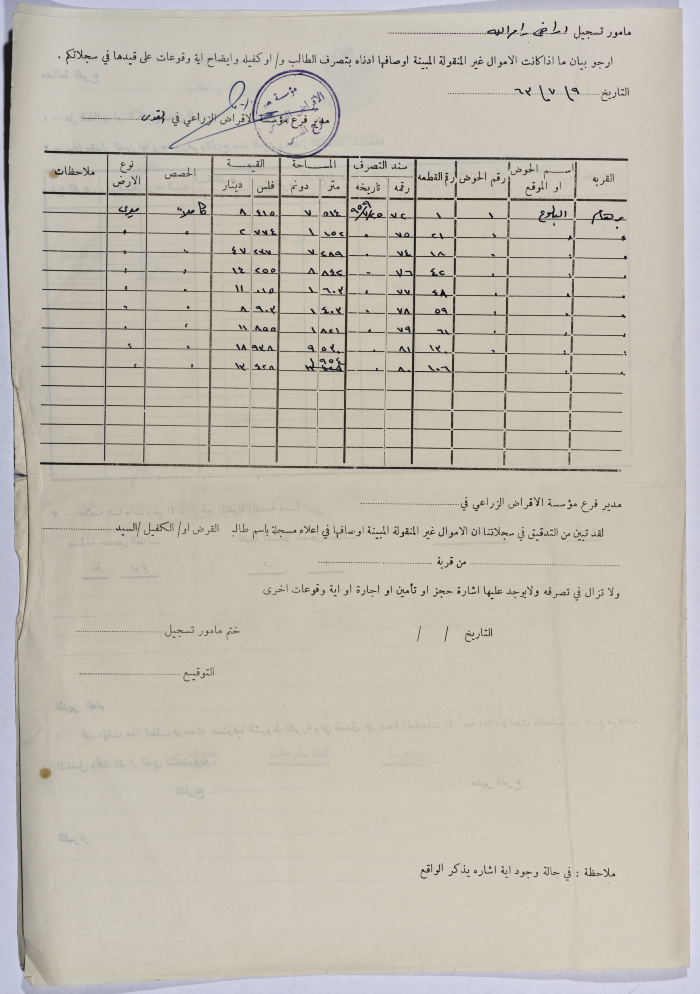 مامور تسجيل اراضي رام الله
ارجو بيان ما اذا كانت الاموال غير المنقولة المبينة اوصافها ادناه بتصرف الطالب و/ او كفيله وايضاح اية وقوعات على قيدها في سجلاتكم .
التاريخ ٩/ ٧/ ٦٣
مؤسسة الاقراض الزراعي فرع القدس
مدير فرع مؤسسة الاقراض الزراعي في القدس
القريه | اسم الحوض او الموقع | رقم الحوض | رقم القطعه | سند التصرف رقمه | تاريخه | المساحة متر | دونم | القيمة فلس | دينار | الحصص | نوع الارض | ملاحظات
برهام | البلوع | ١ | ١ | ٧٢ | ٥١٤ | ٧ | ٤١٥ | ٨ | كاملا | ميري
" | " | " | ٢١ | ٧٥ | " | ١٥٢ | ١ | ٧٧٤ | ٢ | " | "
" | " | " | ١٨ | ٧٤ | " | ٢٨٩ | ٧ | ٢٧٧ | ٤٧ | " | "
" | " | " | ٤٢ | ٧٦ | " | ٨٤٢ | ٨ | ٢٥٥ | ١٤ | " | "
" | " | " | ٤٨ | ٧٧ | " | ٦٠٣ | ١ | ٠١٥ | ١١ | " | "
" | " | " | ٥٩ | ٧٨ | " | ٤٠٣ | ١ | ٩٠٣ | ٨ | " | "
" | " | " | ٦١ | ٧٩ | " | ٨٢١ | ١ | ٨٥٥ | ١١ | " | "
" | " | " | ١٣٠ | ٨١ | " | ٥٣٠ | ٩ | ٩٣٨ | ١٨ | " | "
" | " | ١٠٦ | ٨٠ | " | ٩٥٤ | ١ | ٤٢٨ | ١٣ | " | "
مدير فرع مؤسسة الاقراض الزراعي في
لقد تبين من التدقيق في سجلاتنا ان الاموال غير المنقولة المبينة اوصافها في اعلاه مسجلة باسم طالب القرض او/ الكفيل /السيد
من قرية
ولا تزال في تصرفه ولا يوجد عليها اشارة حجز او تأمين او اجارة او اية وقوعات اخرى
التاريخ / /
ختم مامور تسجيل
التوقيع
ملاحظة : في حالة وجود اية اشاره يذكر الواقع